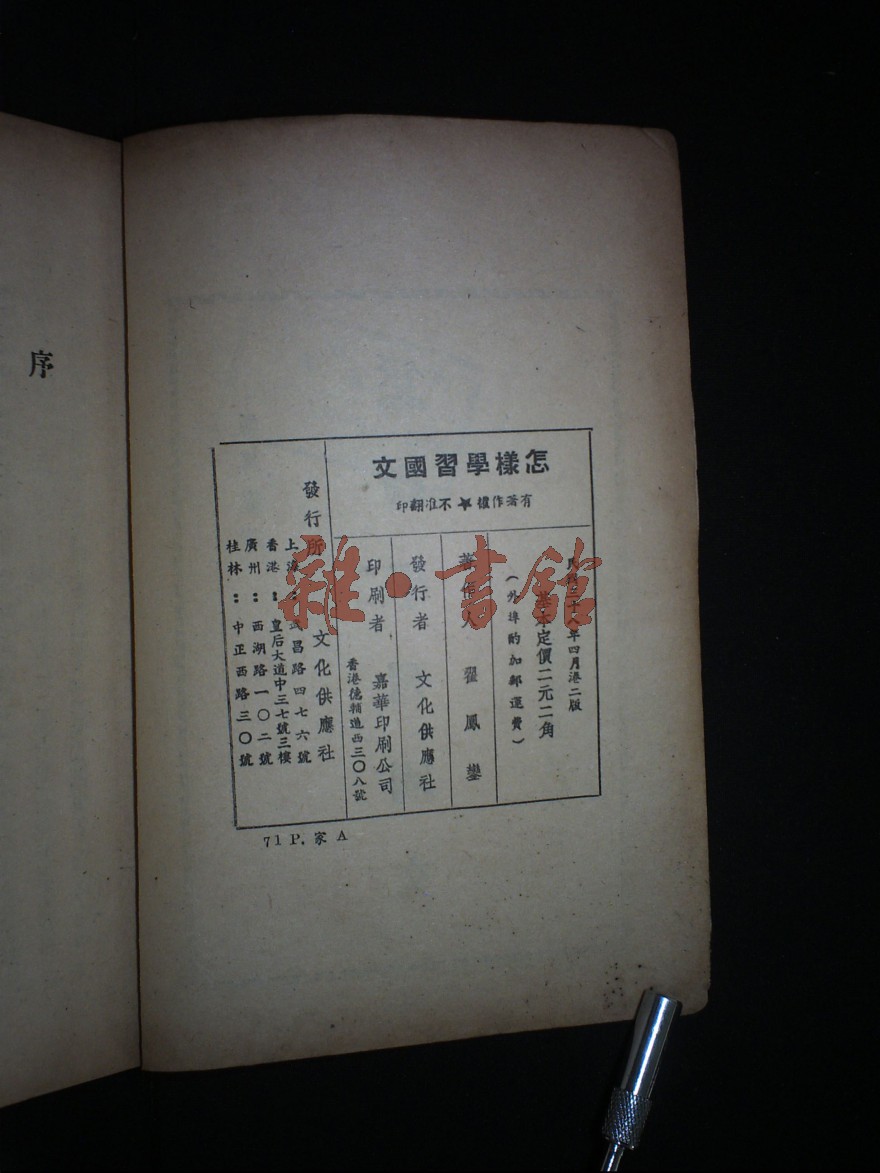 序
怎樣學習國文
有著作權★不准翻印
民國三十八年四月港二版
基本定價二元二角
(外埠酌加郵運費)
著作人 翟鳳鑾
發行者 文化供應社
印刷者 嘉華印刷公司
香港德輔道西三〇八號
發行所 文化供應社
上海：武昌路四七六號
香港：皇后大道中三七號三樓
廣州：西湖路一〇二號
桂林：中正西路三〇號
71 P. 家 A
雜·書館